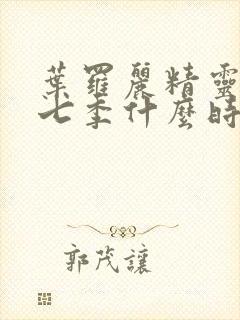 葉羅麗精靈
七季什麼時
郭茂讓